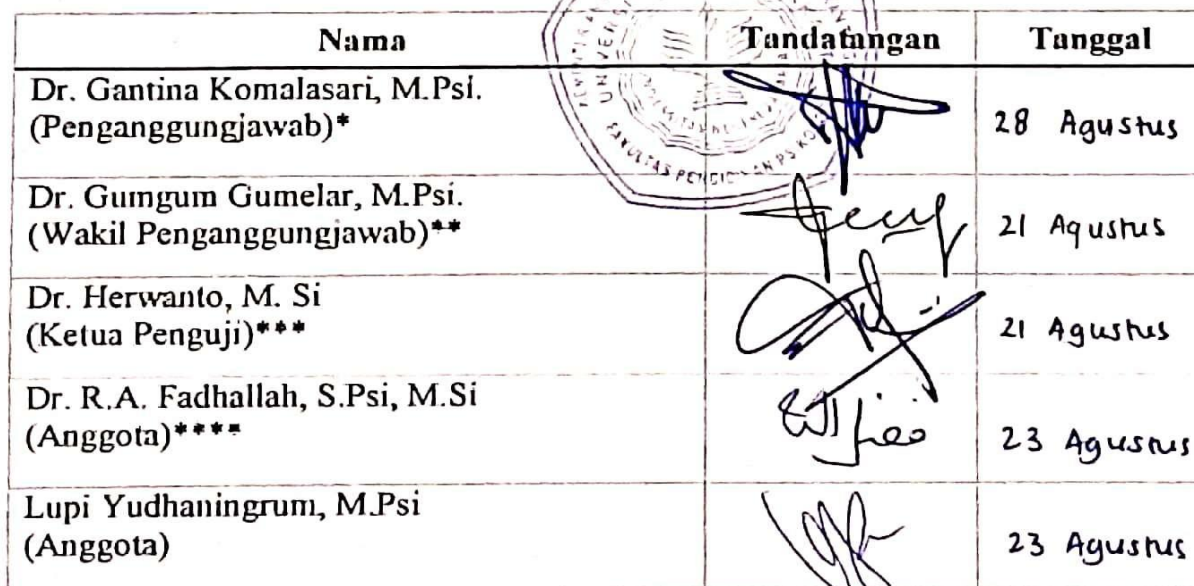 Nama Tandatangan Tanggal
Dr. Gantina Komalasari, M.Psi.
(Penganggungjawab)*
28 Agustus
Dr. Gumgum Gumelar, M.Psi.
(Wakil Penganggungjawab)**
21 Agustus
Dr. Herwanto, M. Si
(Ketua Penguji)***
21 Agustus
Dr. R.A. Fadhallah, S.Psi, M.Si
(Anggota)****
23 Agustus
Lupi Yudhaningrum, M.Psi
(Anggota)
23 Agustus